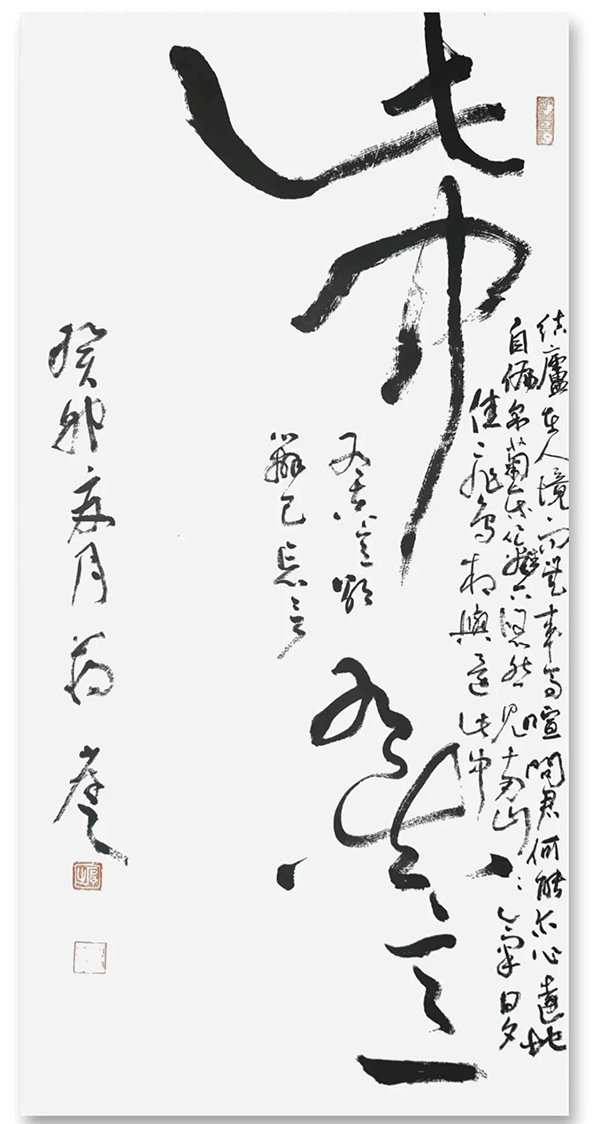 此中有真意
結廬在人境而無車馬喧問君何能尔心遠地
自偏采菊東籬下悠然見南山〻氣日夕
佳飛鳥相與還此中
有真意欲
辨已忘言
癸卯夏月